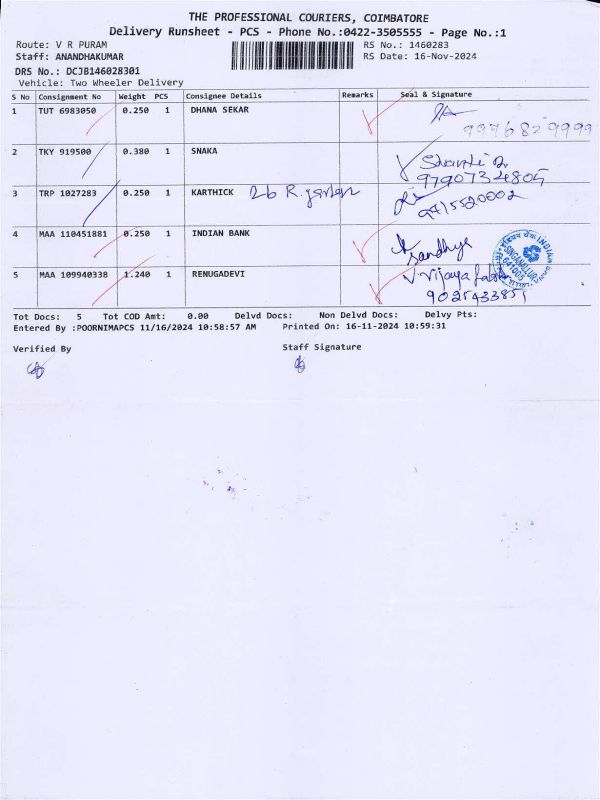 THE PROFESSIONAL COURIERS, COIMBATORE
Delivery Runsheet - PCS - Phone No.:0422-3505555 - Page No.:1
Route: V R PURAM RS No.: 1460283
Staff: ANANDHAKUMAR RS Date: 16-Nov-2024
DRS No.: DCJB146028301
Vehicle: Two Wheeler Delivery
S No Consignment No Weight PCS Consignee Details Remarks Seal & Signature
1 TUT 6983050 0.250 1 DHANA SEKAR
9976829999
2 TKY 919500 0.380 1 SNAKA Shanti
9790734805
3 TRP 1027283 0.250 1 KARTHICK 26 R.
9715520002
4 MAA 110451881 0.250 1 INDIAN BANK Sandhya
5 MAA 109940338 1.240 1 RENUGADEVI V. Vijaya
9025433851
Tot Docs: 5 Tot COD Amt: 0.00 Delvd Docs: Non Delvd Docs: Delvy Pts:
Entered By :POORNIMAPCS 11/16/2024 10:58:57 AM Printed On: 16-11-2024 10:59:31
Verified By Staff Signature